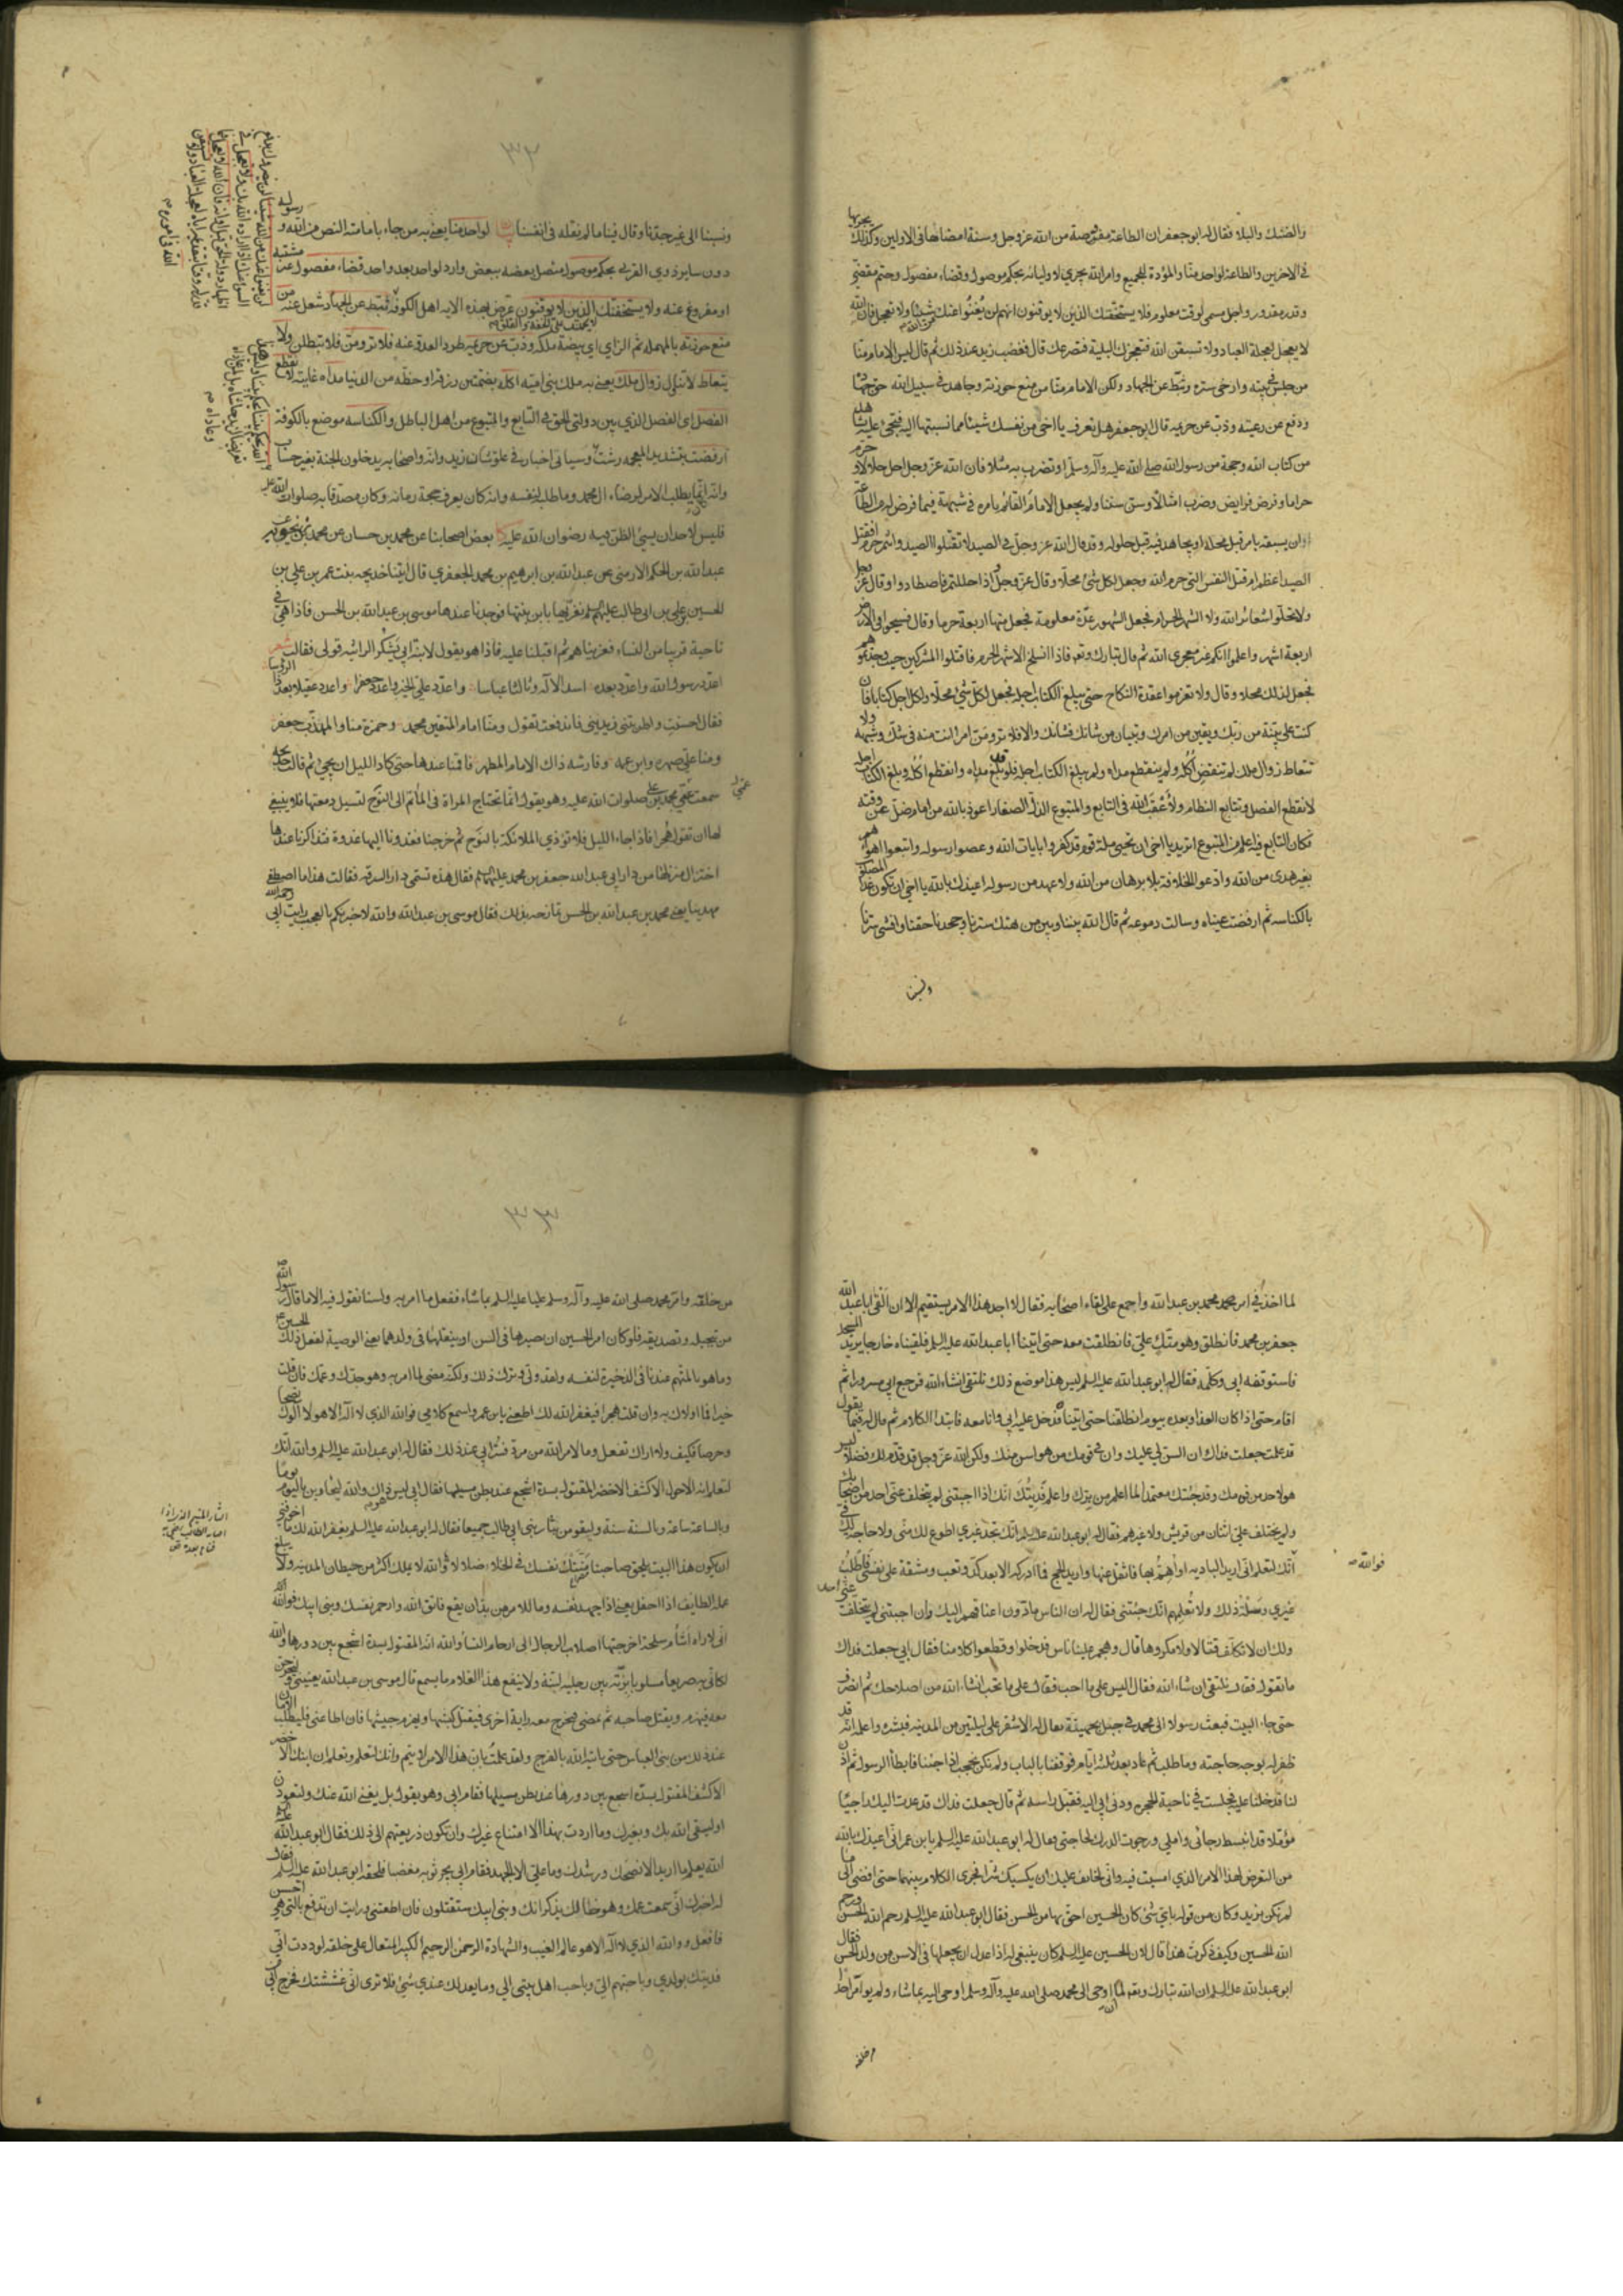 والضنك والبلاء فقال له ابو جعفر ان الطاعة مفروضة من الله عز وجل وسنة امضاها في الاولين وكذلك يجريها
في الاخرين والطاعة لواحد منا والمودة للجميع وامر الله يجري لاوليائه بحكم موصول وقضاء مفصول وحتم مقضي
وقدر مقدور واجل مسمى لوقت معلوم فلا يستخفنك الذين لا يوقنون انهم لن يغنوا عنك من الله شيئا ولا تعجل فان الله
لا يعجل لعجلة العباد ولا تسبقن الله فتعجزك البلية فتصرعك قال فغضب زيد عند ذلك ثم قال ليس الامام منا
من جلس في بيته وارخى ستره وثبط عن الجهاد ولكن الامام منا من منع حوزته وجاهد في سبيل الله حق جهاده
ودفع عن رعيته وذب عن حريمه قال ابو جعفر هل تعرف يا اخي من نفسك شيئا مما نسبتها اليه فتجئ عليه بشاهد
من كتاب الله وحجة من رسول الله صلى الله عليه وآله وسلم او تضرب به مثلا فان الله عز وجل احل حلالا وحرم
حراما وفرض فرايض وضرب امثالا وسن سننا ولم يجعل الامام القائم بامره في شبهة فيما فرض له من الطاعة
ان يسبقه بامر قبل محله او يجاهد فيه قبل حلوله وقد قال الله عز وجل في الصيد لا تقتلوا الصيد وانتم حرم افقتل
الصيد اعظم ام قتل النفس التي حرم الله وجعل لكل شئ محلا وقال عز وجل واذا حللتم فاصطادوا وقال عز وجل
ولا تحلوا شعائر الله ولا الشهر الحرام فجعل الشهور عدة معلومة فجعل منها اربعة حرما وقال فسيحوا في الارض
اربعة اشهر واعلموا انكم غير معجزي الله ثم قال تبارك وتع فاذا انسلخ الاشهر الحرم فاقتلوا المشركين حيث وجدتموهم
فجعل لذلك محلا وقال ولا تعزموا عقدة النكاح حتى يبلغ الكتاب اجله فجعل لكل شئ محلا ولكل اجل كتابا فان
كنت على بينة من ربك ويقين من امرك وتبيان من شانك فشانك والا فلا ترومن امرا انت منه في شك وشبهة ولا
تتعاط زوال ملك لم تنقض اكله ولم ينقطع مداه ولم يبلغ الكتاب اجله فلو قد بلغ مداه وانقطع اكله وبلغ الكتاب اجله
لانقطع الفصل وتتابع النظام ولاعقب الله في التابع والمتبوع الذل والصغار اعوذ بالله من امام ضل عن وقته
فكان التابع فيه اعلم من المتبوع اتريد يا اخي ان تحيي ملة قوم قد كفروا بايات الله وعصوا رسوله واتبعوا اهواءهم
بغير هدى من الله وادعوا الخلافة بلا برهان من الله ولا عهد من رسوله اعيذك بالله يا اخي ان تكون غدا المصلوب
بالكناسه ثم ارفضت عيناه وسالت دموعه ثم قال الله بيننا وبين من هتك سترنا وجحدنا حقنا وافشى سرنا
ونسبنا
٣٢
ونسبنا الى غير جدنا وقال فينا ما لم نقله في انفسنا لواحد منا يعني به من جاء بامامته النص من الله ورسوله
دون ساير ذوي القربى بحكم موصول متصل بعضه ببعض وارد لواحد بعد واحد قضاء مفصول غير مشتبه
او مفروغ عنه ولا يستخفنك الذين لا يوقنون تعرض بهذه الايه اهل الكوفة ثبط عن الجهاد شغل عنه من
منع حوزته بالمهملة ثم الزاي اي بيضة ملكه وذب عن حريمه طرد العدو عنه فلا ترومن فلا تطلبن ولا
يتعاط لا تتناول زوال ملك يعني به ملك بني امية اكله بضمتين رزقه او حظه من الدنيا مداه غايته لانقطع
الفصل اي الفصل الذي بين دولتي الحق في التابع والمتبوع من اهل الباطل والكناسه موضع بالكوفة
ارفضت بتشديد المعجمه رشت وسياتي اخبار في علو شان زيد وانه واصحابه يدخلون الجنة بغير حساب
وانه انما يطلب الامر لرضاء ال محمد وما طلبه لنفسه وانه كان يعرف حجة زمانه وكان مصدقا به صلوات الله عليه
فليس لاحد ان يسئ الظن فيه رضوان الله عليه بعض اصحابنا عن محمد بن حسان عن محمد بن زنجويه عن
عبد الله بن الحكم الارمني عن عبد الله بن ابرهيم بن محمد الجعفري قال اتينا خديجه بنت عمر بن علي بن
الحسين بن علي بن ابي طالب عليهم السلم نعزيها بابن بنتها فوجدنا عندها موسى بن عبد الله بن الحسن فاذا هي في
ناحية قريبا من النساء فعزيناهم ثم اقبلنا عليه فاذا هو يقول لابنة ابي يشكر الراثيه قولي فقالت شعر
اعدد رسول الله واعدد بعده اسد الاله وثالثا عباسا واعدد علي الخير واعدد جعفرا واعدد عقيلا بعده الرواسا
فقال احسنت واطربتني زيديني فاندفعت تقول ومنا امام المتقين محمد وحمزة منا والمهذب جعفر
ومنا علي صهره وابن عمه وفارسه ذاك الامام المطهر فاقمنا عندها حتى كاد الليل ان يجئ ثم قالت خديجه
سمعت عمي محمد بن علي صلوات الله عليه وهو يقول انما تحتاج المراة في الماتم الى النوح لتسيل دمعتها فلا ينبغي
لها ان تقول هجرا فاذا جاء الليل فلا تؤذي الملائكة بالنوح ثم خرجنا فغدونا اليها غدوة فتذاكرنا عندها
اختزال منزلها من دار ابي عبد الله جعفر بن محمد عليهما السلم فقال هذه تسمى دار السرقه فقالت هذا ما اصطفى
مهدينا يعني محمد بن عبد الله بن الحسن تمازحه بذلك فقال موسى بن عبد الله والله لاخبرنكم بالعجب رايت ابي رحمه الله
لما اخذ في امر محمد بن عبد الله واجمع على لقاء اصحابه فقال لا اجد هذا الامر يستقيم الا ان القى ابا عبد الله
جعفر بن محمد فانطلق وهو متك علي فانطلقت معه حتى اتينا ابا عبد الله عليه السلم فلقيناه خارجا يريد المسجد
فاستوقفه ابي وكلمه فقال له ابو عبد الله عليه السلم ليس هذا موضع ذلك نلتقي انشاء الله فرجع ابي مسرورا ثم
اقام حتى اذا كان الغد او بعده بيوم انطلقنا حتى اتيناه فدخل عليه ابي وانا معه فابتدا الكلام ثم قال له فيما يقول
قد علمت جعلت فداك ان السن لي عليك وان في قومك من هو اسن منك ولكن الله عز وجل قد قدم لك فضلا ليس
هو لاحد من قومك وقد جئتك معتمدا لما اعلم من برك واعلم فديتك انك اذا اجبتني لم يتخلف عني احد من اصحابك
ولم يختلف علي اثنان من قريش ولا غيرهم فقال له ابو عبد الله عليه السلم انك تجد غيري اطوع لك مني ولا حاجة لك في
فوالله انك لتعلم اني اريد الباديه او اهم بها فاثقل عنها واريد الحج فما ادركه الا بعد كد وتعب ومشقة على نفسي فاطلب
غيري وسله ذلك ولا تعلمهم انك جئتني فقال له ان الناس مادون اعناقهم اليك وان اجبتني لم يتخلف عني احد
ولك ان لا تكلف قتالا ولا مكروها قال وهجم علينا ناس فدخلوا وقطعوا كلامنا فقال ابي جعلت فداك
ما تقول فقال نلتقي ان شاء الله فقال اليس على ما احب فقال على ما تحب انشاء الله من اصلاحك ثم انصرف
حتى جاء البيت فبعث رسولا الى محمد في جبل بجهينة يقال له الاشقر على ليلتين من المدينه فبشره واعلمه انه قد
ظفر له بوجه حاجته وما طلب ثم عاد بعد ثلثة ايام فوقفنا بالباب ولم نكن نحجب اذا جئنا فابطأ الرسول ثم اذن
لنا فدخلنا عليه فجلست في ناحية الحجره ودنا ابي اليه فقبل راسه ثم قال جعلت فداك قد عدت اليك راجيا
مؤملا قد انبسط رجائي واملي ورجوت الدرك لحاجتي فقال له ابو عبد الله عليه السلم يا بن عم اني اعيذك بالله
من التعرض لهذا الامر الذي امسيت فيه واني لخائف عليك ان يكسبك شرا فجرى الكلام بينهما حتى افضى الى ما
لم يكن يريد وكان من قوله باي شئ كان الحسين احق بها من الحسن فقال ابو عبد الله عليه السلم رحم الله الحسن ورحم
الله الحسين وكيف ذكرت هذا قال لان الحسين عليه السلم كان ينبغي له اذا عدل ان يجعلها في الاسن من ولد الحسن فقال
ابو عبد الله عليه السلم ان الله تبارك وتع لما اوحى الى محمد صلى الله عليه وآله وسلم اوحى اليه بما شاء ولم يوامر احدا
من خلقه
٣٣
من خلقه وامر محمد صلى الله عليه وآله وسلم عليا عليه السلم بما شاء ففعل ما امر به ولسنا نقول فيه الا ما قال رسول الله ص
من تبجيله وتصديقه فلو كان امر الحسين ان يصيرها في السن او ينقلها في ولدهما يعني الوصية لفعل ذلك الحسين
وما هو بالمتهم عندنا في الذخيرة لنفسه ولقد ولي وترك ذلك ولكنه مضى لما امر به وهو جدك وعمك فان قلت
خيرا فما اولاك به وان قلت هجرا فيغفر الله لك اطعني يابن عم واسمع كلامي فوالله الذي لا اله الا هو لا الوك نصحا
وحرصا فكيف ولا اراك تفعل وما لامر الله من مرد فسر ابي عند ذلك فقال له ابو عبد الله عليه السلم والله انك
لتعلم انه الاحول الاكشف الاخضر المقتول بسدة اشجع عند بطن مسيلها فقال ابي ليس هو ذاك والله ليحاربن باليوم يوما
وبالساعة ساعة وبالسنة سنة وليقومن بثار بني ابي طالب جميعا فقال له ابو عبد الله عليه السلم يغفر الله لك ما اخوفني
ان يكون هذا البيت يلحق صاحبنا منتك نفسك في الخلاء ضلالا لا والله لا يملك اكثر من حيطان المدينه ولا يبلغ
عمله الطايف اذا احفل يعني اذا اجهد نفسه وما للامر من بد ان يقع فاتق الله وارحم نفسك وبني ابيك فوالله
اني لاراه اشام سلحة اخرجتها اصلاب الرجال الى ارحام النساء والله انه المقتول بسدة اشجع بين دورها والله
لكاني به صريعا مسلوبا بزته بين رجليه لبنة ولا ينفع هذا الغلام ما يسمع قال موسى بن عبد الله يعنيني وليخرجن
معه فيهزم ويقتل صاحبه ثم يمضي فيخرج معه راية اخرى فيقتل كبشها ويهزم جيشها فان اطاعني فليطلب الامان
عند ذلك من بني العباس حتى ياتيه الله بالفرج ولقد علمت بان هذا الامر لا يتم وانك لتعلم ونعلم ان ابنك الاحول الاخضر
الاكشف المقتول بسدة اشجع بين دورها عند بطن مسيلها فقام ابي وهو يقول بل يغني الله عنك ولتعودن
اوليقي الله بك وبغيرك وما اردت بهذا الا امتناع غيرك وان تكون ذريعتهم الى ذلك فقال ابو عبد الله
الله يعلم ما اريد الا نصحك ورشدك وما علي الا الجهد فقام ابي يجر ثوبه مغضبا فلحقه ابو عبد الله عليه السلم فقال
له اخبرك اني سمعت عمك وهو خالك يذكر انك وبني ابيك ستقتلون فان اطعتني ورايت ان تدفع بالتي هي احسن
فافعل ووالله الذي لا اله الا هو عالم الغيب والشهادة الرحمن الرحيم الكبير المتعال على خلقه لوددت اني
فديتك بولدي وباحبهم الي وباحب اهل بيتي الي وما يعدلك عندي شئ فلا ترى اني غششتك فخرج ابي